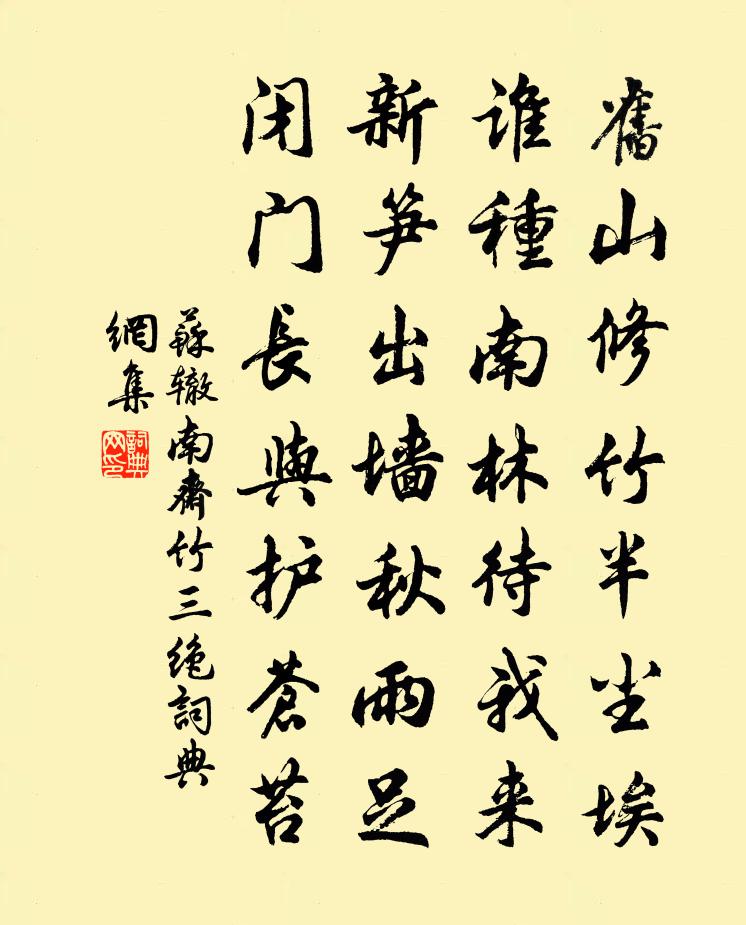 舊山修竹半尘埃
谁種南林待我来
新笋出墙秋雨足
闭门長與护蒼苔
蘇辙南齋竹三绝詞典
網集
詞典
网印